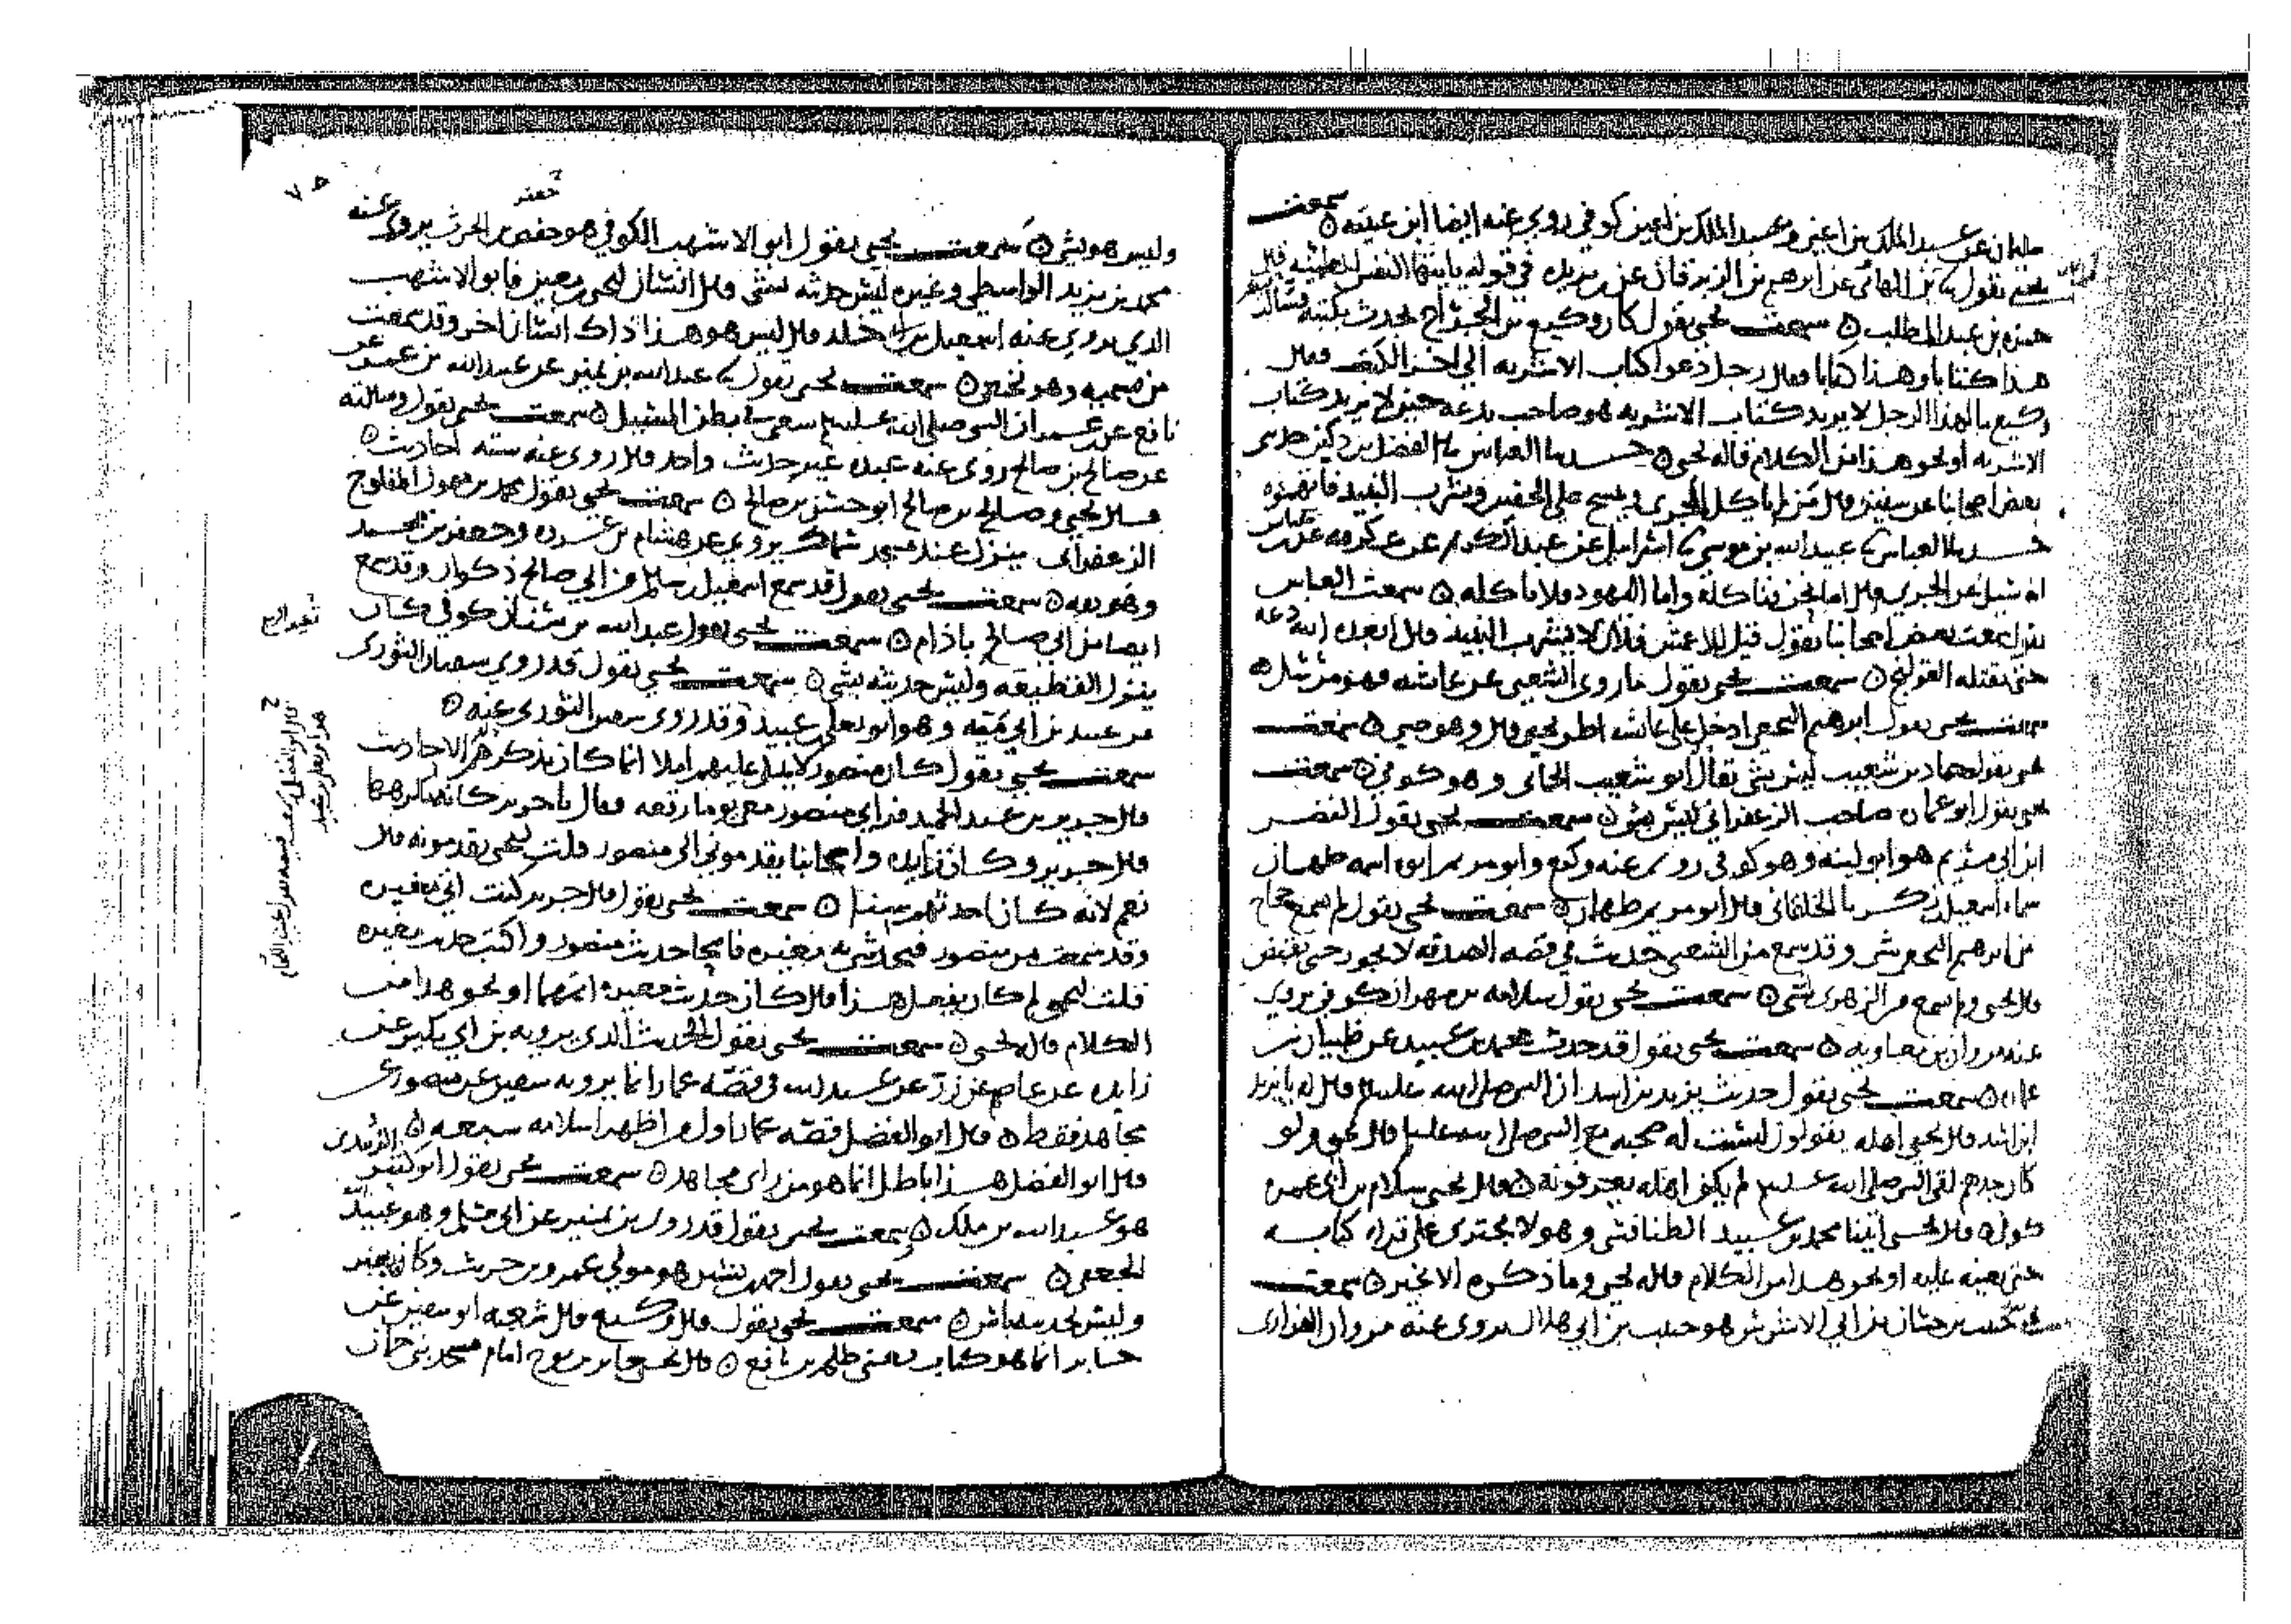 سلمان عن عبد الملك بن اعين وعبد الملك بن اعين كوفي روى عنه ايضا ابن عيينه ه سمعت
يحيى يقول عن ابرهيم بن الزبرقان عن بن بريده في قوله يايتها النفس المطمئنه قال
حمزه بن عبد المطلب ه سمعت يحيى يقول كان وكيع بن الجراح يحدث بكتبه فسالت
هذا كتابا وهذا كتابا فقال رجل دعوا كتاب الاشربه الى اخر الكتب فقال
وكيع ما لهذا الرجل لا يريد كتاب الاشربه هو صاحب بدعه حين لا يريد كتاب
الاشربه او نحو هذا من الكلام قاله يحيى ه حدثنا العباس الفضل بن دكين حدثني
بعض اصحابنا عن سفين قال من لم ياكل الجري ويمسح على الخفين ويشرب النبيذ فاتهموه
حدثنا العباس عبيد الله بن موسى اسرائيل عن عبد الكريم عن عكرمه عن بن عباس
انه سئل عن الجري قال اما نحن فناكله واما اليهود فلا تاكله ه سمعت العباس
يقول سمعت بعض اصحابنا يقول قيل للاعمش فلان لا يشرب النبيذ قال ابعده الله دعه
حتى يقتله القولنج ه سمعت يحيى يقول ما روى الشعبي عن عائشه فهو مرسل ه
سمعت يحيى يقول ابرهيم النخعي ادخل على عائشه اظن يحيى قال وهو صبي ه سمعت
يحيى يقول حماد بن شعيب ليس بشي يقال ابو شعيب الحماني وهو كوفي ه سمعت
يحيى يقول ابو عثمان صاحب الزعفراني ليس بشي ه سمعت يحيى يقول النضر
ابن ابي مريم هو ابو لينه وهو كوفي روى عنه وكيع وابو مريم ابوه اسمه طهمان
سماه اسمعيل بن زكريا الخلقاني قال ابو مريم طهمان ه سمعت يحيى يقول لم يسمع حجاج
من ابرهيم النخعي شي وقد سمع من الشعبي حديث في قصه الصدقه لا يجوز حتى تقبض
قال يحيى ولم يسمع من الزهري شي ه سمعت يحيى يقول سلامه بن مهران كوفي يروي
عنه مروان بن معاويه ه سمعت يحيى يقول قد حدث محمد بن عبيد عن ظبيان بن
عماره ه سمعت يحيى يقول حديث يزيد بن اسد ان النبي صلى الله عليه قال له يا يزيد
ابن اسد قال يحيى اهله يقولون ليست له صحبه مع النبي صلى الله عليه قال يحيى ولو
كان جدهم لقي النبي صلى الله عليه لم يكن اهله يعرفونه ه قال يحيى سلام بن ابي عمره
كوفي ه قال يحيى اتينا محمد بن عبيد الطنافسي وهو لا يجترئ على قراه كتابه
حتى نعينه عليه او نحو هذا من الكلام قاله يحيى وما ذكره الا بخير ه سمعت
يحيى حبيب بن حسان بن ابي الاشرس هو حبيب بن ابي هلال يروى عنه مروان الفزاري
٧٥
وليس هو بشي ه سمعت يحيى يقول ابو الاشهب الكوفي هو حفص بن الحرث يروى عنه
جعفر
محمد بن يزيد الواسطي وغيره ليس حديثه بشي قال انسان ليحيى بن معين فابو الاشهب
الذي يروي عنه اسمعيل بن ابي خالد قال ليس هو هذا ذاك انسان اخر وقد سمعت
من يسميه وهو نخعي ه سمعت يحيى يقول عبد الله بن نمير عن عبد الله بن عمر عن
نافع عن بن عمر ان النبي صلى الله عليه سعى في بطن المسيل ه سمعت يحيى يقول وسالته
عن صالح بن صالح روى عنه عبده غير حديث واحد قال روى عنه سته احاديث ه
قال يحيى وصالح بن صالح ابو حسن بن صالح ه سمعت يحيى يقول محمد بن ميمون المفلوج
الزعفراني ينزل عند مسجد سماك يروي عن هشام بن عروه وجعفر بن محمد
وهو ثقه ه سمعت يحيى يقول قد سمع اسمعيل بن سالم من ابي صالح ذكوان وقد سمع
ايضا من ابي صالح باذام ه سمعت يحيى يقول عبد الله بن سنان كوفي كان
ينزل القطيعه وليس حديثه بشي ه سمعت يحيى يقول قد روى سفيان الثوري
عن عبيد بن ابي اميه وهو ابو يعلى بن عبيد وقد روى سفين الثوري عنه ه
سمعت يحيى يقول كان منصور لا يملي عليهم املا انما كان يذكرهم الاحاديث
قال جرير بن عبد الحميد فراى منصور معي يوما رقعه فقال يا جرير كانه كرهها
قال جرير وكان زايده واصحابنا يقدموني الى منصور قلت ليحيى يقدمونه قال
نعم لانه كان احدثهم سنا ه سمعت يحيى يقول قال جرير كنت اتي مغيره
وقد سمعت من منصور فيحدثني به مغيره فامحا حديث منصور واكتب حديث مغيره
قلت ليحيى لم كان يفعل هذا قال كان حديث مغيره اتمهما او نحو هذا من
الكلام قاله يحيى ه سمعت يحيى يقول الحديث الذي يرويه بن ابي بكير عن
زايده عن عاصم عن زر عن عبد الله في قصه عمار انما يرويه سفين عن منصور عن
مجاهد فقط ه قال ابو الفضل قصه عمار اول من اظهر اسلامه سبعه ه
قال ابو الفضل هذا باطل انما هو من راي مجاهد ه سمعت يحيى يقول ابو كثير الزبيدي
هو عبد الله بن ملك ه سمعت يحيى يقول قد روى بن نمير عن ابي مسلم وهو عبيد
الجعفي ه سمعت يحيى يقول احمد بن بشير هو مولى عمرو بن حريث وكان يقين
وليس بحديثه باس ه سمعت يحيى يقول قال وكيع قال شعبه ابو سفين عن
جابر انما هو كتاب يعني طلحه بن نافع ه قال يحيى جابر بن نوح امام مسجد بني حمان